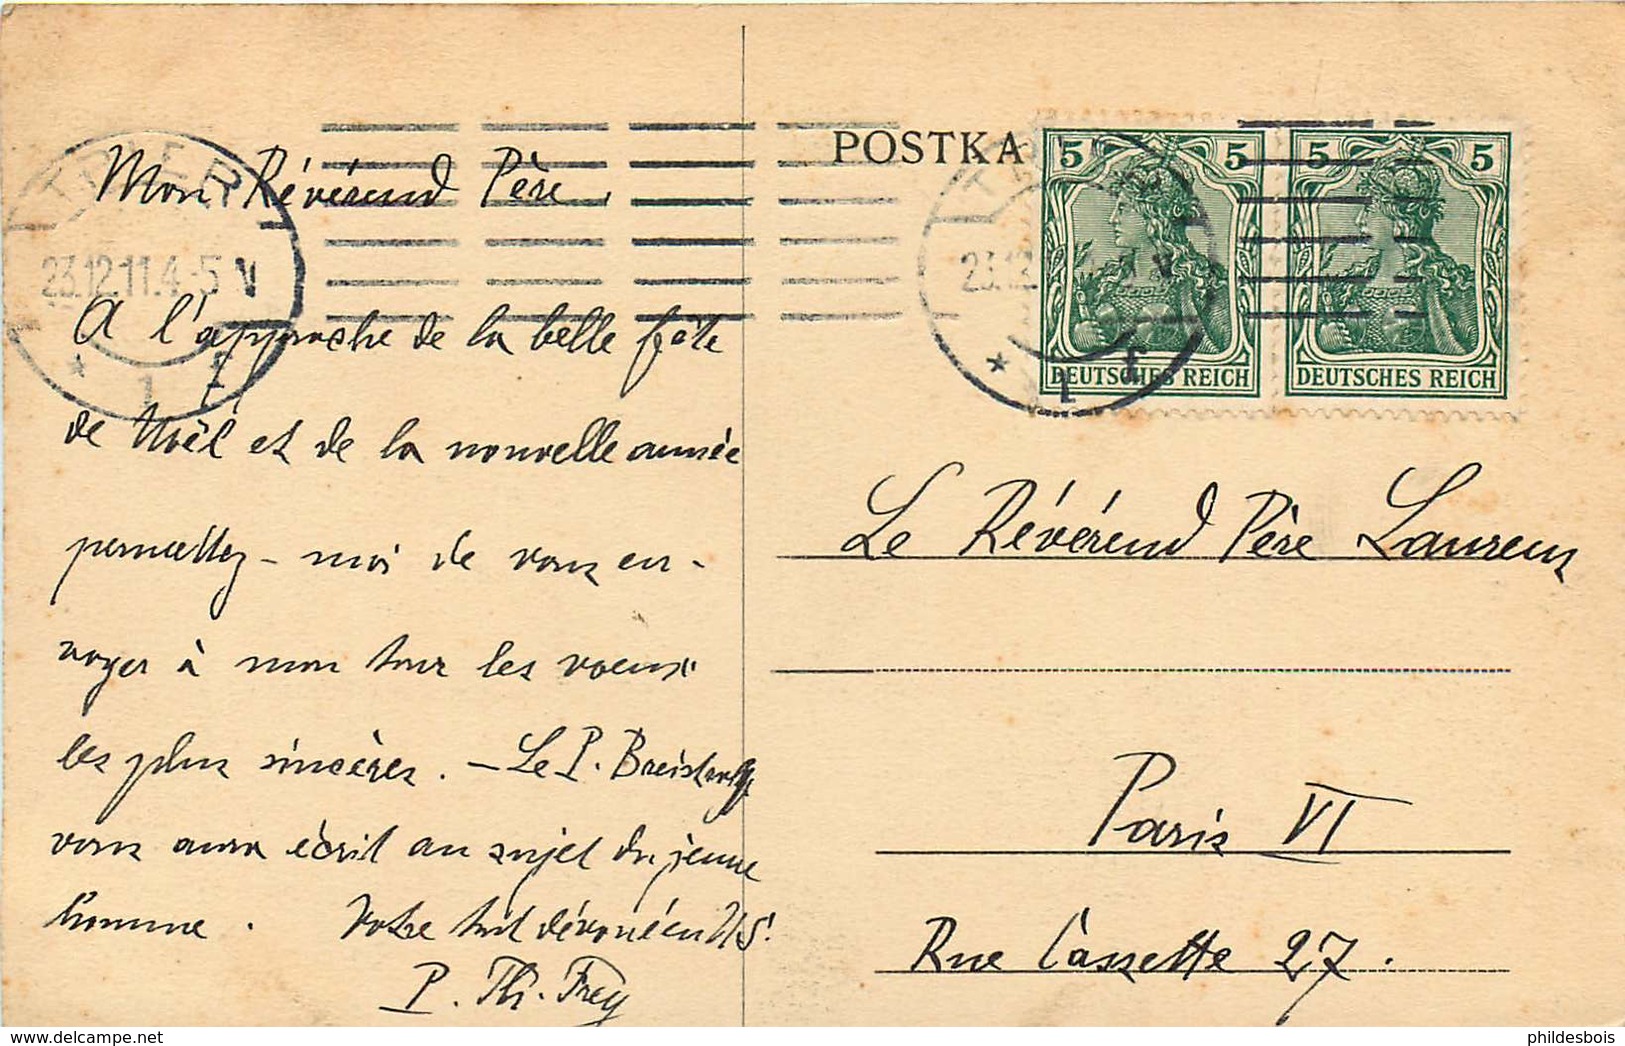 Mon Révérend Père,
A l'approche de la belle fête
de Noël et de la nouvelle année
permettez-moi de vous en-
voyer à mon tour les voeux
les plus sincères. – Le P.
vous aura écrit au sujet du jeune
homme. Votre tout dévoué en N S.
P. Th. Frey
TRIER
23.12.11.4-5 V
* 1 f
POSTKA
TR
23.12 V
* 1 f
5 5
DEUTSCHES REICH
5 5
DEUTSCHES REICH
Le Révérend Père Laurent
Paris VI
Rue Cassette 27.
phildesbois